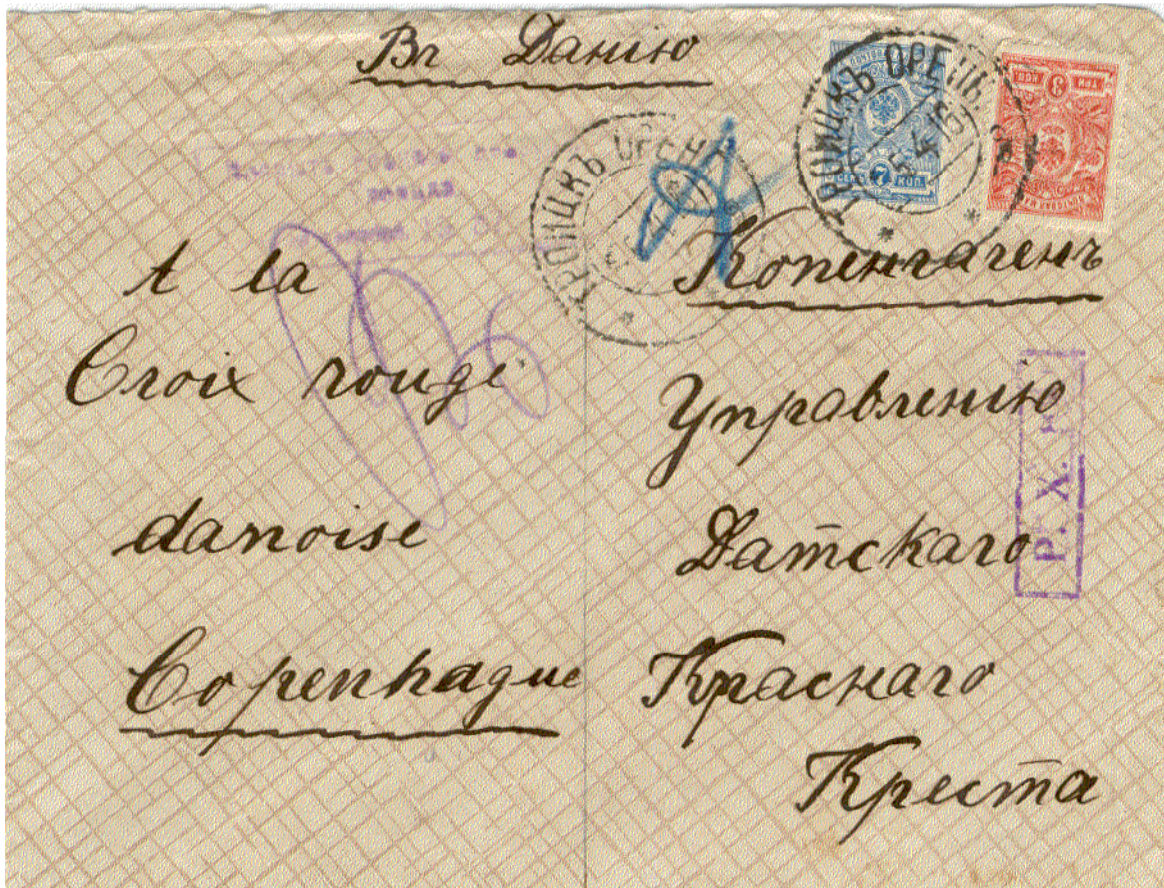 Въ Данію
ТРОИЦКЪ ОРЕНБ.
7 КОП.
3
ТРОИЦКЪ ОРЕНБ
Копенгагенъ
A la
Croix rouge
danoise
Copenhague
Управленію
Датскаго
Краснаго
Креста
Р. Х.